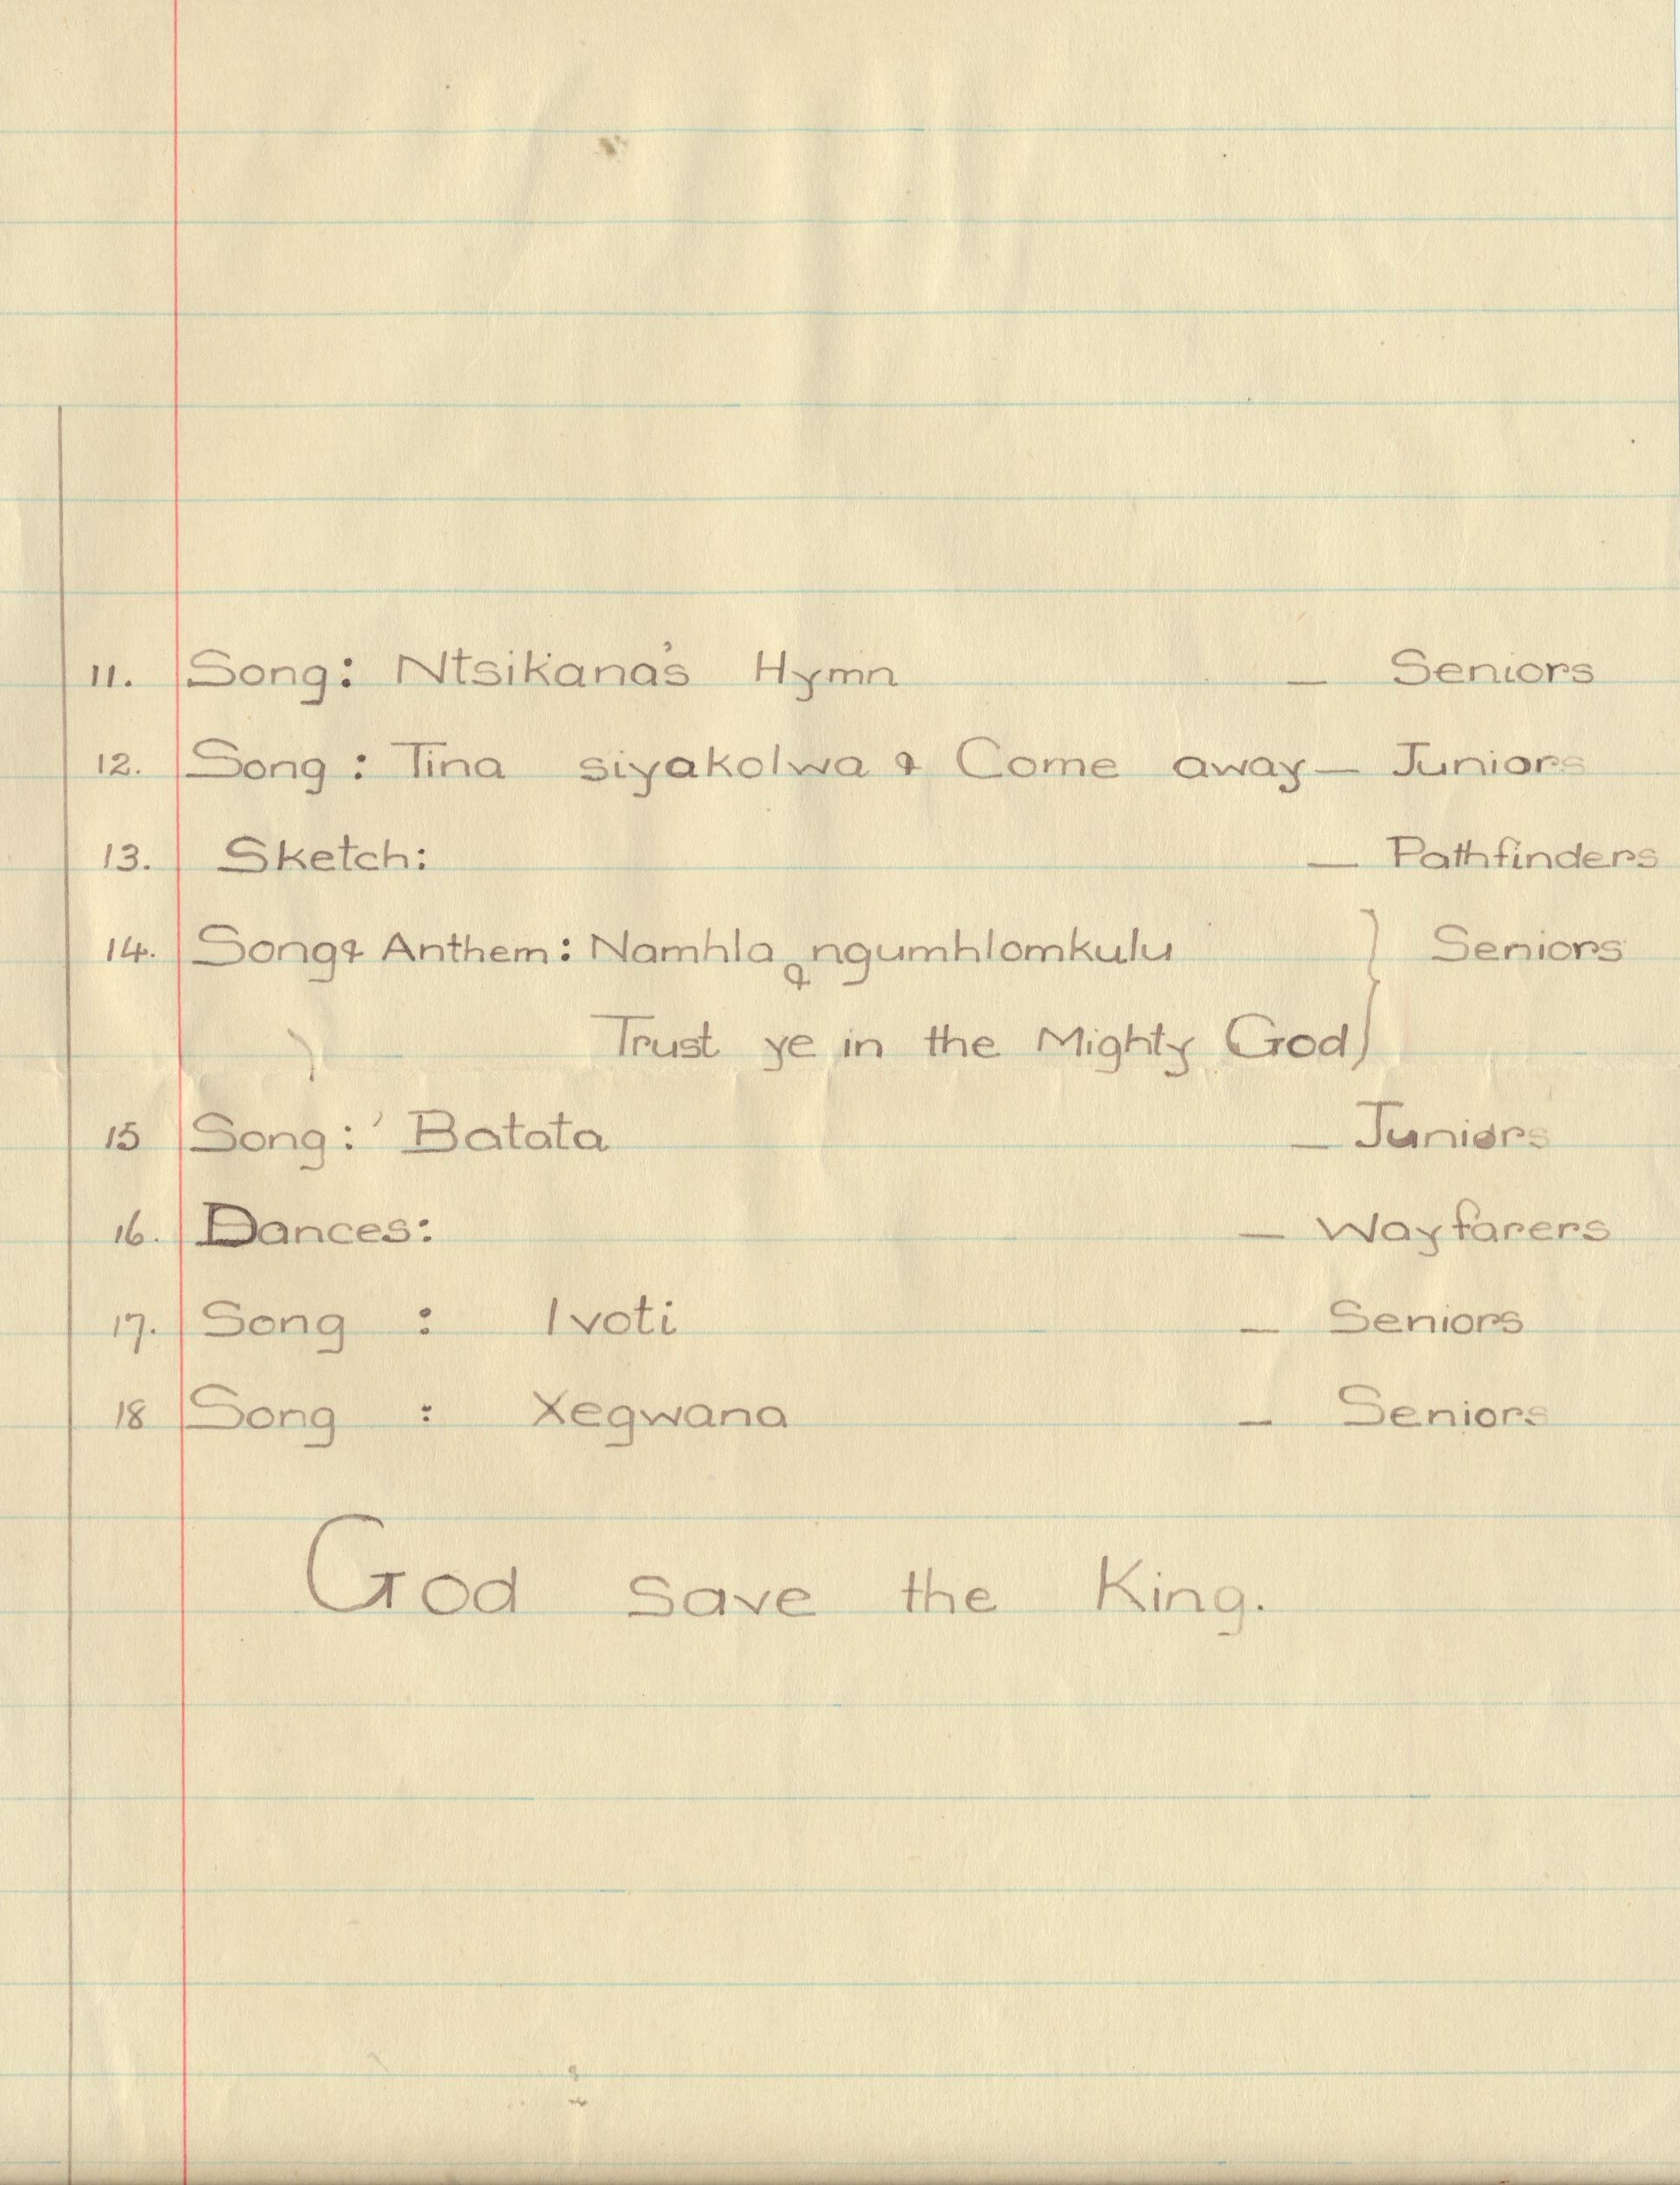 11. Song: Ntsikana's Hymn — Seniors
12. Song: Tina siyakolwa & Come away — Juniors
13. Sketch: — Pathfinders
14. Song & Anthem: Namhla ngumhlomkulu } Seniors
&
Trust ye in the Mighty God
15 Song: Batata — Juniors
16. Dances: — Wayfarers
17. Song : Ivoti — Seniors
18 Song : Xegwana — Seniors
God save the King.